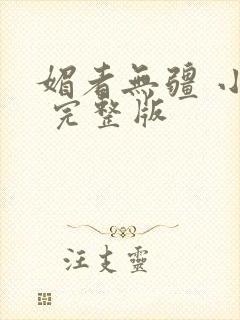 媚者無疆 小
完整版
汪支靈